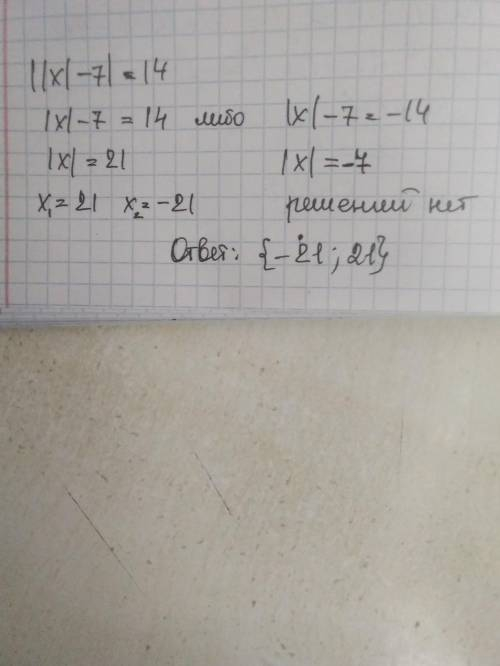 ||x| - 7| = 14
|x| - 7 = 14 либо |x| - 7 = -14
|x| = 21 |x| = -7
x₁ = 21 x₂ = -21 решений нет
Ответ: {-21; 21}